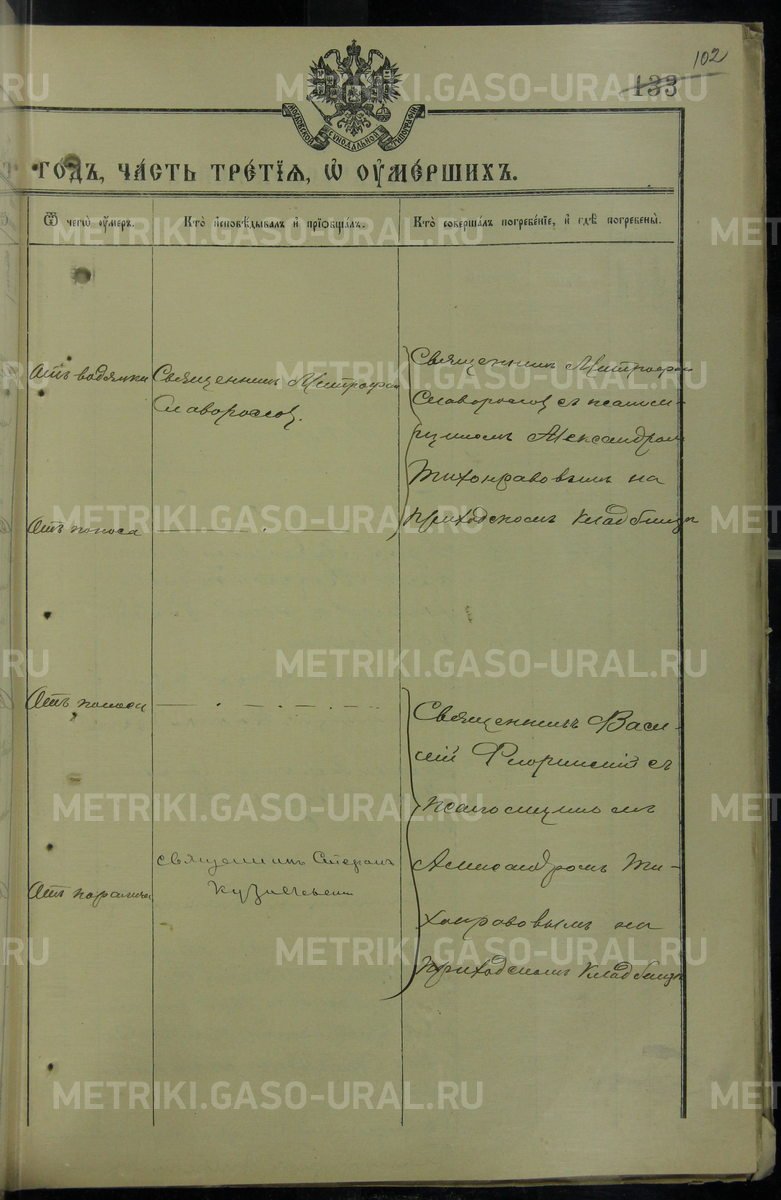 102
133
МОСКОВСКОЙ СѴНОДАЛЬНОЙ ТИПОГРАФІИ
ГОДЪ, ЧА́СТЬ ТРЕ́ТІѦ, Ѡ҆ ОУ҆МЕ́РШИХЪ.
Ѿ чегѡ̀ оу҆́меръ.
Кто̀ и҆сповѣ́дывалъ и҆ прїѻбща́лъ.
Кто̀ соверша́лъ погребе́нїе, и҆ гдѣ̀ погребены̀.
Отъ водянки
Священникъ Митрофан
Словороссов.
Священникъ Митрофан
Словороссов съ псалом-
щикомъ Александром
Тихонравовымъ на
приходскомъ кладбищѣ
Отъ поноса
Отъ поноса
Священникъ Васи-
лій Флоринскій съ
псаломщикомъ
Александромъ Ти-
хонравовымъ на
приходскомъ кладбищѣ
Отъ паралича
священникъ Стефанъ
METRIKI.GASO-URAL.RU